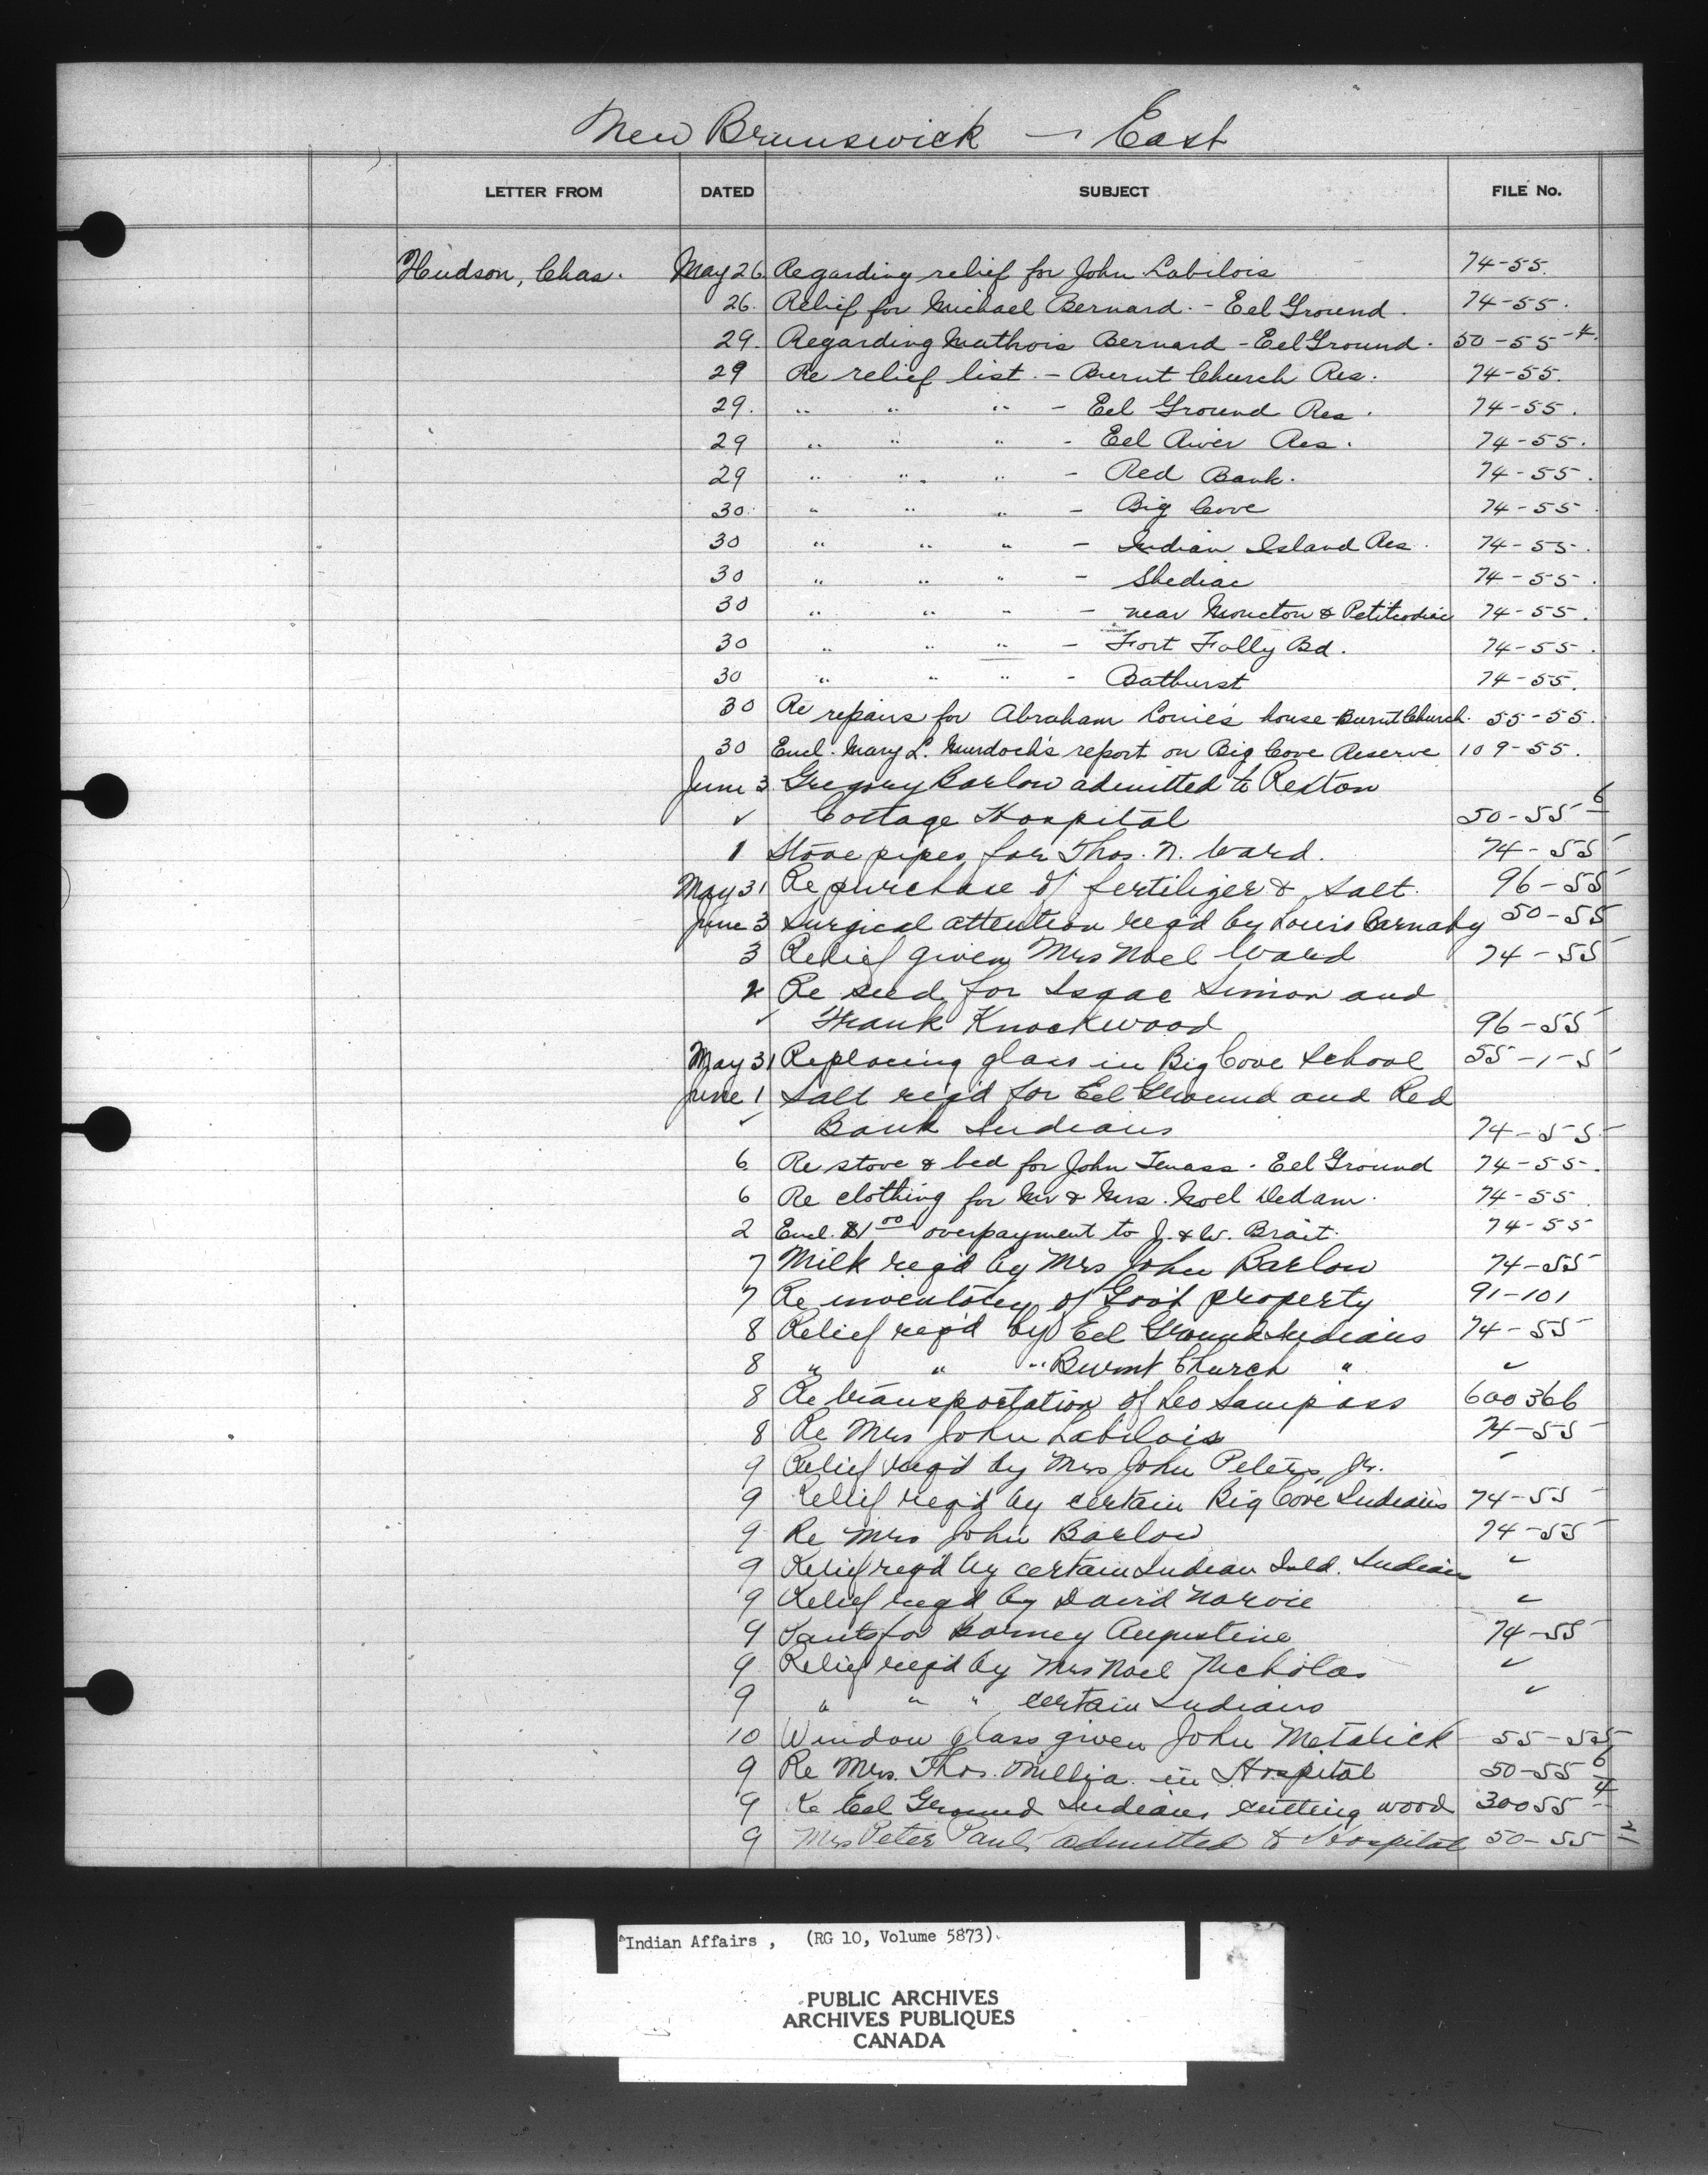 New Brunswick — East
LETTER FROM DATED SUBJECT FILE No.
Hudson, Chas. May 26. Regarding relief for John Labilois 74-55.
26. Relief for Michael Bernard. - Eel Ground. 74-55.
29. Regarding Mathois Bernard - Eel Ground. 50-55-4.
29 Re relief list. - Burnt Church Res. 74-55.
29. " " " - Eel Ground Res. 74-55.
29 " " " - Eel River Res. 74-55.
29 " " " - Red Bank. 74-55.
30. " " " - Big Cove 74-55.
30 " " " - Indian Island Res. 74-55.
30 " " " - Shediac 74-55.
30 " " " - near Moncton & Petitcodiac 74-55.
30 " " " - Fort Folly Bd. 74-55.
30 " " " - Bathurst 74-55.
30 Re repairs for Abraham Louie's house - Burnt Church. 55-55.
30 Encl. Mary L. Murdoch's report on Big Cove Reserve 109-55.
June 3 Gregory Barlow admitted to Rexton
✓ Cottage Hospital 50-55-6
1 Stove pipes for Thos. N. Ward. 74-55
May 31 Re purchase of fertilizer & salt. 96-55
June 3 Surgical attention req'd by Louis Barnaby 50-55
3 Relief given Mrs Noel Ward 74-55
2 Re seed for Isaac Simon and
✓ Frank Knockwood 96-55
May 31 Replacing glass in Big Cove School 55-1-5
June 1 Salt req'd for Eel Ground and Red
✓ Bank Indians 74-55
6 Re stove & bed for John Tenass - Eel Ground 74-55.
6 Re clothing for Mr & Mrs. Noel Dedam. 74-55
2 Encl. $1 00 overpayment to J. & W. Brait. 74-55
7 Milk req'd by Mrs John Barlow 74-55
7 Re inventory of Gov't property 91-101
8 Relief req'd by Eel Ground Indians 74-55
8 " " " Burnt Church " ✓
8 Re transportation of Leo Sampass 600366
8 Re Mrs John Labilois 74-55
9 Relief req'd by Mrs John Peters, Jr. ✓
9 Relief req'd by certain Big Cove Indians 74-55
9 Re Mrs John Barlow 74-55
9 Relief req'd by certain Indian Isld. Indians ✓
9 Relief req'd by David Narvie ✓
9 Pants for Barney Augustine 74-55
9 Relief req'd by Mrs Noel Nicholas ✓
9 " " " certain Indians ✓
10 Window glass given John Metalick 55-55
9 Re Mrs. Thos. Millia in Hospital 50-55 6
9 Re Eel Ground Indians cutting wood 30055-4
9 Mrs Peter Paul admitted to Hospital 50-55 2
Indian Affairs, (RG 10, Volume 5873)
PUBLIC ARCHIVES
ARCHIVES PUBLIQUES
CANADA